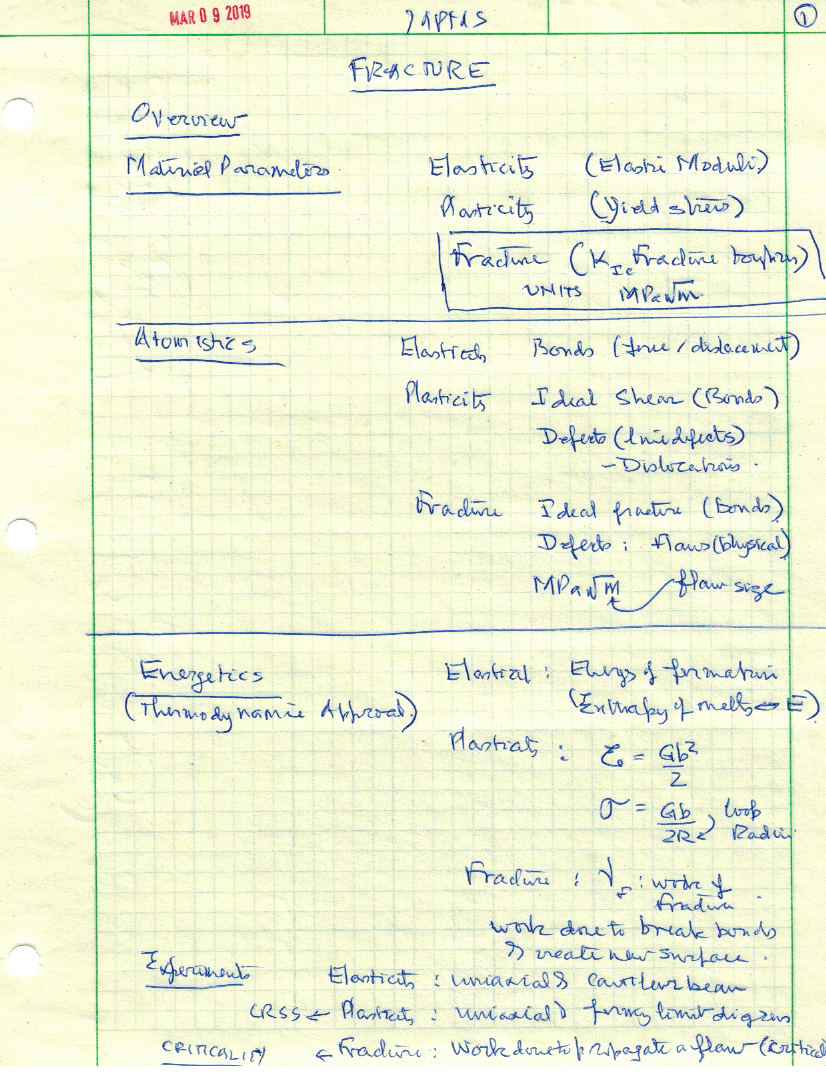 MAR 09 2019
1
FRACTURE
Overview
Material Parameters Elasticity (Elastic Moduli)
Plasticity (Yield stress)
Fracture (K_Ic Fracture toughness)
UNITS MPa√m
Atomistics Elasticity Bonds (force / displacement)
Plasticity Ideal Shear (Bonds)
Defects (line defects)
- Dislocations.
Fracture Ideal fracture (Bonds)
Defects : flaws (physical)
MPa√m flaw size
Energetics Elastical : Energy of formation
(Thermodynamic Approach) (Enthalpy of melts ↔ E)
Plasticity : ℰ = Gb²/2
σ = Gb/2R loop
Radius
Fracture : γ_F : work of
Fracture
work done to break bonds
& create new surface.
Experiments Elasticity : uniaxial & cantilever beam
CRSS ← Plasticity : uniaxial & forming limit diagram
CRITICALITY ← Fracture : Work done to propagate a flaw (critical